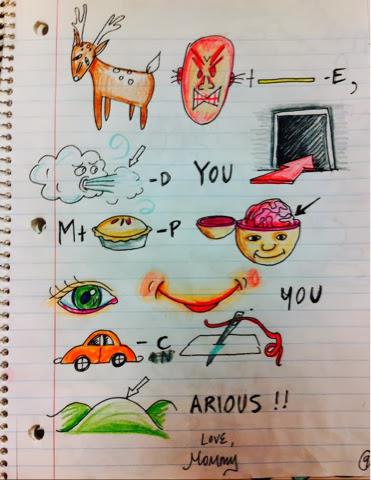 + -E,
-D YOU
M+ -P
YOU
-C
ARIOUS !!
LOVE,
Mommy